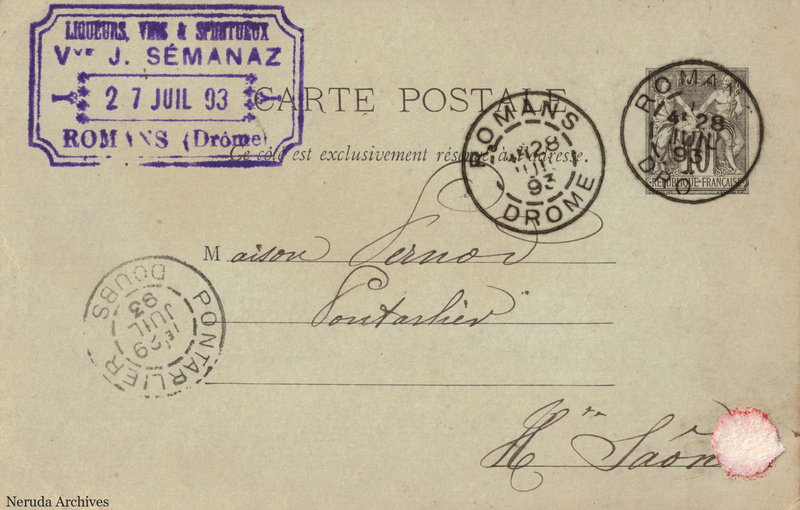 LIQUEURS, VINS & SPIRITUEUX
Vve J. SÉMANAZ
27 JUIL 93
ROMANS (Drôme)
CARTE POSTALE
Ce côté est exclusivement réservé à l'adresse.
ROMANS
4E 28
JUIL
93
DROME
ROMANS
4E 28
JUIL
93
DRO
10
REPUBLIQUE FRANÇAISE
Maison Pernod
Pontarlier
PONTARLIER
1E 29
JUIL
93
DOUBS
Hte Saôn
Neruda Archives